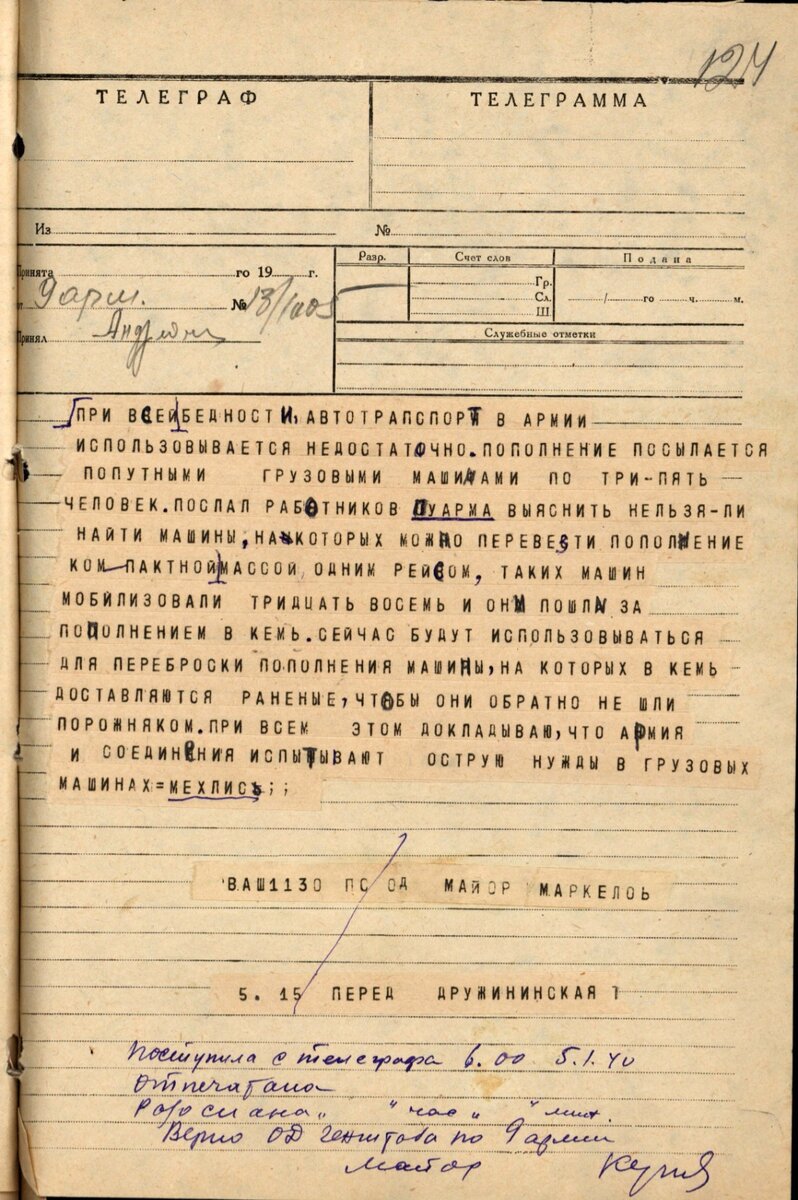 124
ТЕЛЕГРАФ
ТЕЛЕГРАММА
Из №
Принята го 19 г.
от 9 арм. № 13/1005
Принял
Разр. Счет слов Подана
Гр.
Сл. / го ч. м.
Ш.
Служебные отметки
ПРИ ВСЕЙ БЕДНОСТИ, АВТОТРАПСПОРТ В АРМИИ
ИСПОЛЬЗОВЫВАЕТСЯ НЕДОСТАТОЧНО. ПОПОЛНЕНИЕ ПОСЫЛАЕТСЯ
ПОПУТНЫМИ ГРУЗОВЫМИ МАШИНАМИ ПО ТРИ-ПЯТЬ
ЧЕЛОВЕК. ПОСЛАЛ РАБОТНИКОВ ПУАРМА ВЫЯСНИТЬ НЕЛЬЗЯ-ЛИ
НАЙТИ МАШИНЫ, НА КОТОРЫХ МОЖНО ПЕРЕВЕЗТИ ПОПОЛНЕНИЕ
КОМПАКТНОЙ МАССОЙ ОДНИМ РЕЙСОМ, ТАКИХ МАШИН
МОБИЛИЗОВАЛИ ТРИДЦАТЬ ВОСЕМЬ И ОНИ ПОШЛИ ЗА
ПОПОЛНЕНИЕМ В КЕМЬ. СЕЙЧАС БУДУТ ИСПОЛЬЗОВЫВАТЬСЯ
ДЛЯ ПЕРЕБРОСКИ ПОПОЛНЕНИЯ МАШИНЫ, НА КОТОРЫХ В КЕМЬ
ДОСТАВЛЯЮТСЯ РАНЕНЫЕ, ЧТОБЫ ОНИ ОБРАТНО НЕ ШЛИ
ПОРОЖНЯКОМ. ПРИ ВСЕМ ЭТОМ ДОКЛАДЫВАЮ, ЧТО АРМИЯ
И СОЕДИНЕНИЯ ИСПЫТЫВАЮТ ОСТРУЮ НУЖДЫ В ГРУЗОВЫХ
МАШИНАХ=МЕХЛИСЬ;;
ВАШ1130 ПС ОД МАЙОР МАРКЕЛОЬ
5. 15 ПЕРЕД ДРУЖИНИНСКАЯ Т
Поступила с телеграфа 6.00 5.1.40
Отпечатана
Разослана „ " час „ " мин.
Верно ОД Генштаба по 9 армии
Майор